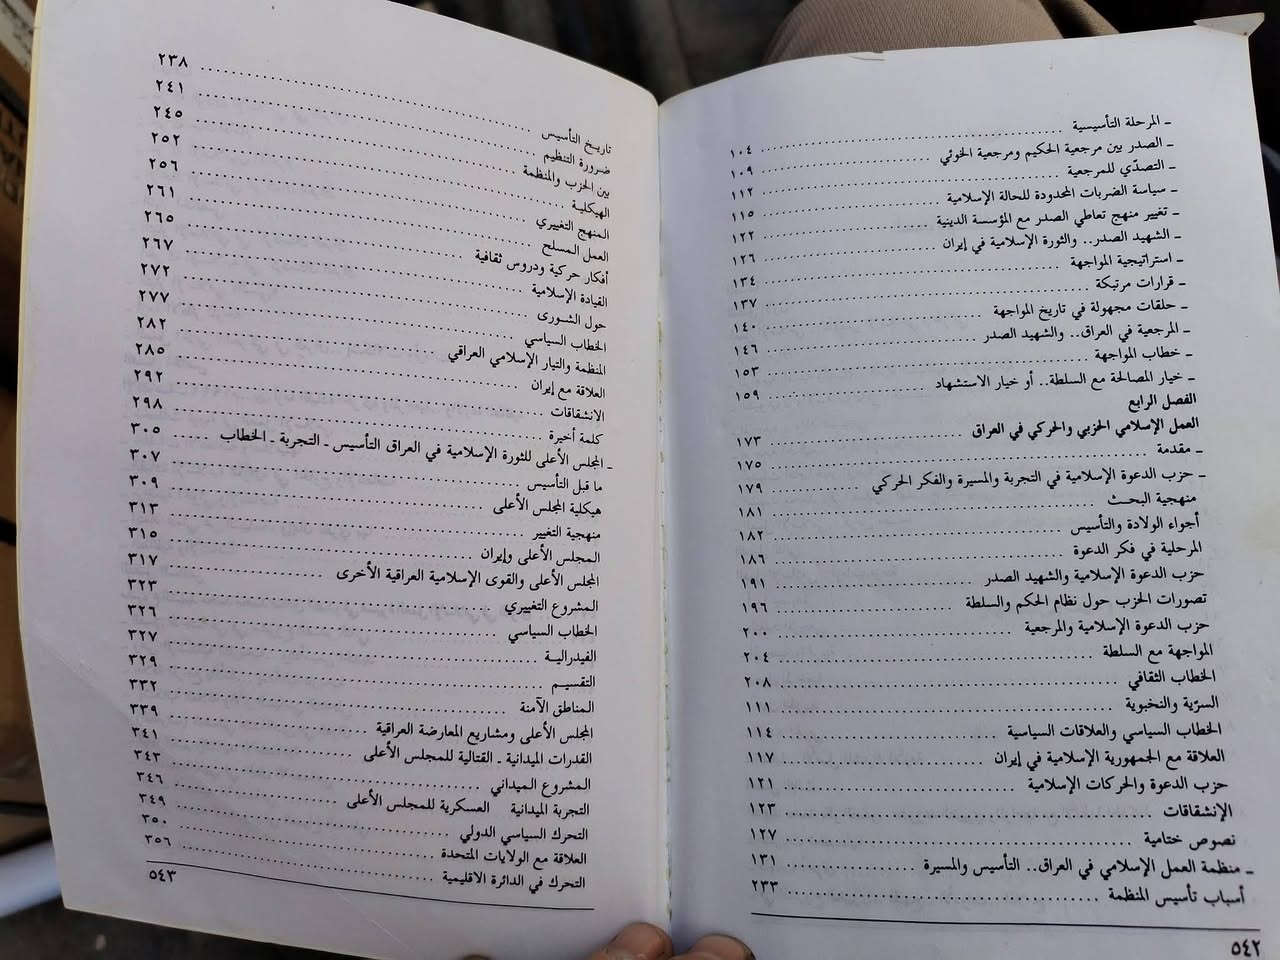 ـ المرحلة التأسيسية ........ ١٠٤
ـ الصدر بين مرجعية الحكيم ومرجعية الخوئي ........ ١٠٩
ـ التصدّي للمرجعية ........ ١١٢
ـ سياسة الضربات المحدودة للحالة الإسلامية ........ ١١٥
ـ تغيير منهج تعاطي الصدر مع المؤسسة الدينية ........ ١٢٢
ـ الشهيد الصدر.. والثورة الإسلامية في إيران ........ ١٢٦
ـ استراتيجية المواجهة ........ ١٣٤
ـ قرارات مرتبكة ........ ١٣٧
ـ حلقات مجهولة في تاريخ المواجهة ........ ١٤٠
ـ المرجعية في العراق.. والشهيد الصدر ........ ١٤٦
ـ خطاب المواجهة ........ ١٥٣
ـ خيار المصالحة مع السلطة.. أو خيار الاستشهاد ........ ١٥٩
الفصل الرابع
العمل الإسلامي الحزبي والحركي في العراق ........ ١٧٣
ـ مقدمة ........ ١٧٥
ـ حزب الدعوة الإسلامية في التجربة والمسيرة والفكر الحركي ........ ١٧٩
منهجية البحث ........ ١٨١
أجواء الولادة والتأسيس ........ ١٨٢
المرحلية في فكر الدعوة ........ ١٨٦
حزب الدعوة الإسلامية والشهيد الصدر ........ ١٩١
تصورات الحزب حول نظام الحكم والسلطة ........ ١٩٦
حزب الدعوة الإسلامية والمرجعية ........ ٢٠٠
المواجهة مع السلطة ........ ٢٠٤
الخطاب الثقافي ........ ٢٠٨
السرّية والنخبوية ........ ١١١
الخطاب السياسي والعلاقات السياسية ........ ١١٤
العلاقة مع الجمهورية الإسلامية في إيران ........ ١١٧
حزب الدعوة والحركات الإسلامية ........ ١٢١
الإنشقاقات ........ ١٢٣
نصوص ختامية ........ ١٢٧
ـ منظمة العمل الإسلامي في العراق.. التأسيس والمسيرة ........ ١٣١
أسباب تأسيس المنظمة ........ ٢٣٣
٥٤٢
تاريخ التأسيس ........ ٢٣٨
ضرورة التنظيم ........ ٢٤١
بين الحزب والمنظمة ........ ٢٤٥
الهيكلية ........ ٢٥٢
المنهج التغييري ........ ٢٥٦
العمل المسلح ........ ٢٦١
أفكار حركية ودروس ثقافية ........ ٢٦٥
القيادة الإسلامية ........ ٢٦٧
حول الشورى ........ ٢٧٢
الخطاب السياسي ........ ٢٧٧
المنظمة والتيار الإسلامي العراقي ........ ٢٨٢
العلاقة مع إيران ........ ٢٨٥
الانشقاقات ........ ٢٩٢
كلمة أخيرة ........ ٢٩٨
ـ المجلس الأعلى للثورة الإسلامية في العراق التأسيس ـ التجربة ـ الخطاب ........ ٣٠٥
ما قبل التأسيس ........ ٣٠٧
هيكلية المجلس الأعلى ........ ٣٠٩
منهجية التغيير ........ ٣١٣
المجلس الأعلى وإيران ........ ٣١٥
المجلس الأعلى والقوى الإسلامية العراقية الأخرى ........ ٣١٧
المشروع التغييري ........ ٣٢٣
الخطاب السياسي ........ ٣٢٦
الفيدرالية ........ ٣٢٧
التقسيم ........ ٣٢٩
المناطق الآمنة ........ ٣٣٢
المجلس الأعلى ومشاريع المعارضة العراقية ........ ٣٣٩
القدرات الميدانية ـ القتالية للمجلس الأعلى ........ ٣٤١
المشروع الميداني ........ ٣٤٣
التجربة الميدانية العسكرية للمجلس الأعلى ........ ٣٤٦
التحرك السياسي الدولي ........ ٣٤٩
العلاقة مع الولايات المتحدة ........ ٣٥٠
التحرك في الدائرة الاقليمية ........ ٣٥٦
٥٤٣